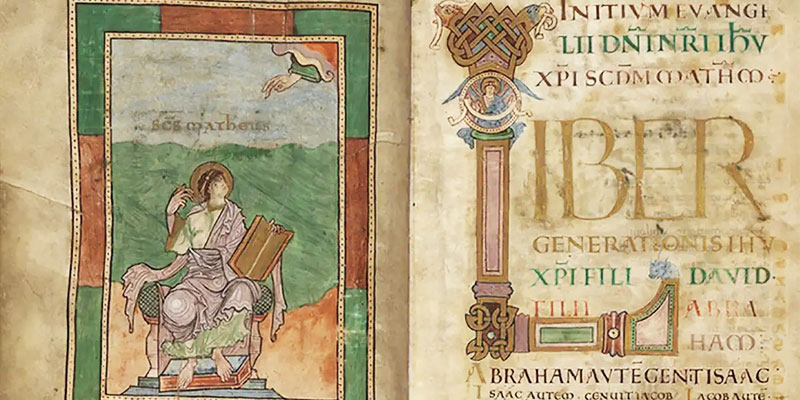 SCS MATHEUS
INITIUM EVANGE
LII DNI NRI IHU
XPI SCDM MATHM
LIBER
GENERATIONIS IHU
XPI FILI DAVID
FILII ABRA
HAM
ABRAHAM AUTE GENT ISAAC
ISAAC AUTEM GENUIT IACOB IACOB AUTE